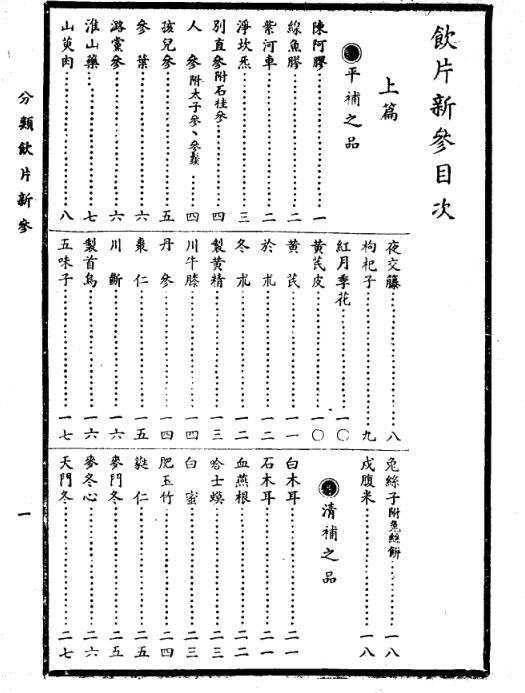 飲片新參目次
上篇
平補之品
陳阿膠……一
線魚膠……二
紫河車……二
淨坎炁……三
別直參附石柱參……四
人參附太子參、參鬚……四
孩兒參……五
參葉……六
潞黨參……六
淮山藥……七
山萸肉……八
夜交籐……八
枸杞子……九
紅月季花……一〇
黃芪皮……一〇
黃芪……一一
於朮……一二
冬朮……一二
製黃精……一三
川牛膝……一四
丹參……一四
棗仁……一五
川斷……一六
製首烏……一六
五味子……一七
兔絲子附兔絲餅……一八
戍腹米……一八
清補之品
白木耳……二一
石木耳……二一
血燕根……二二
哈士蟆……二三
白蜜……二三
肥玉竹……二四
蕤仁……二五
麥門冬……二五
麥冬心……二六
天門冬……二七
分類飲片新參
一